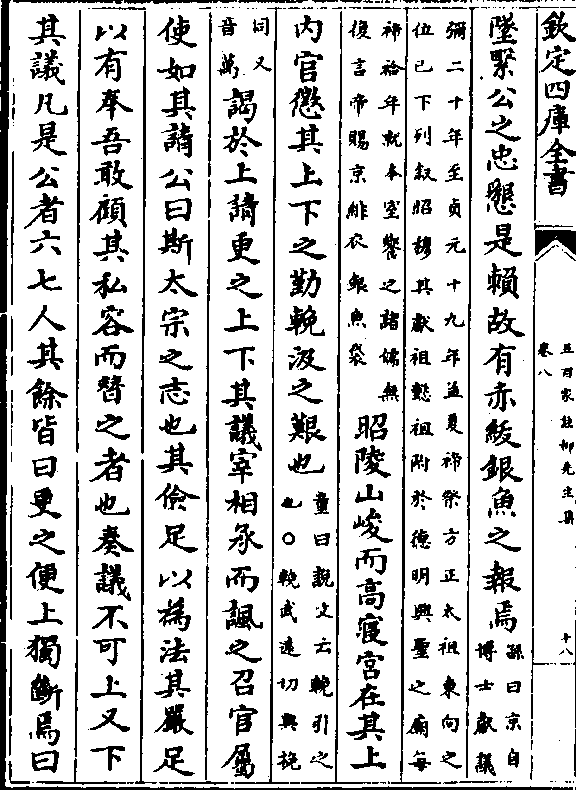 欽定四庫全書
五百家註柳先生集
卷八
十八
墜緊公之忠懇是賴故有赤紱銀魚之報焉孫曰京自博士獻議
彌二十年至貞元十九年孟夏禘祭方正太祖東向之
位已下列敘昭穆其獻祖懿祖附於德明興聖之廟每
禘祫年就本室饗之諸儒無
復言帝賜京緋衣銀魚袋
昭陵山峻而高寢宮在其上
內官懲其上下之勤輓汲之艱也童曰説文云輓引之
也○輓武遠切與挽
同又
音萬
謁於上請更之上下其議宰相承而諷之召官屬
使如其請公曰斯太宗之志也其儉足以爲法其嚴足
以有奉吾敢顧其私容而替之者也奏議不可上又下
其議凡是公者六七人其餘皆曰更之便上獨斷焉曰